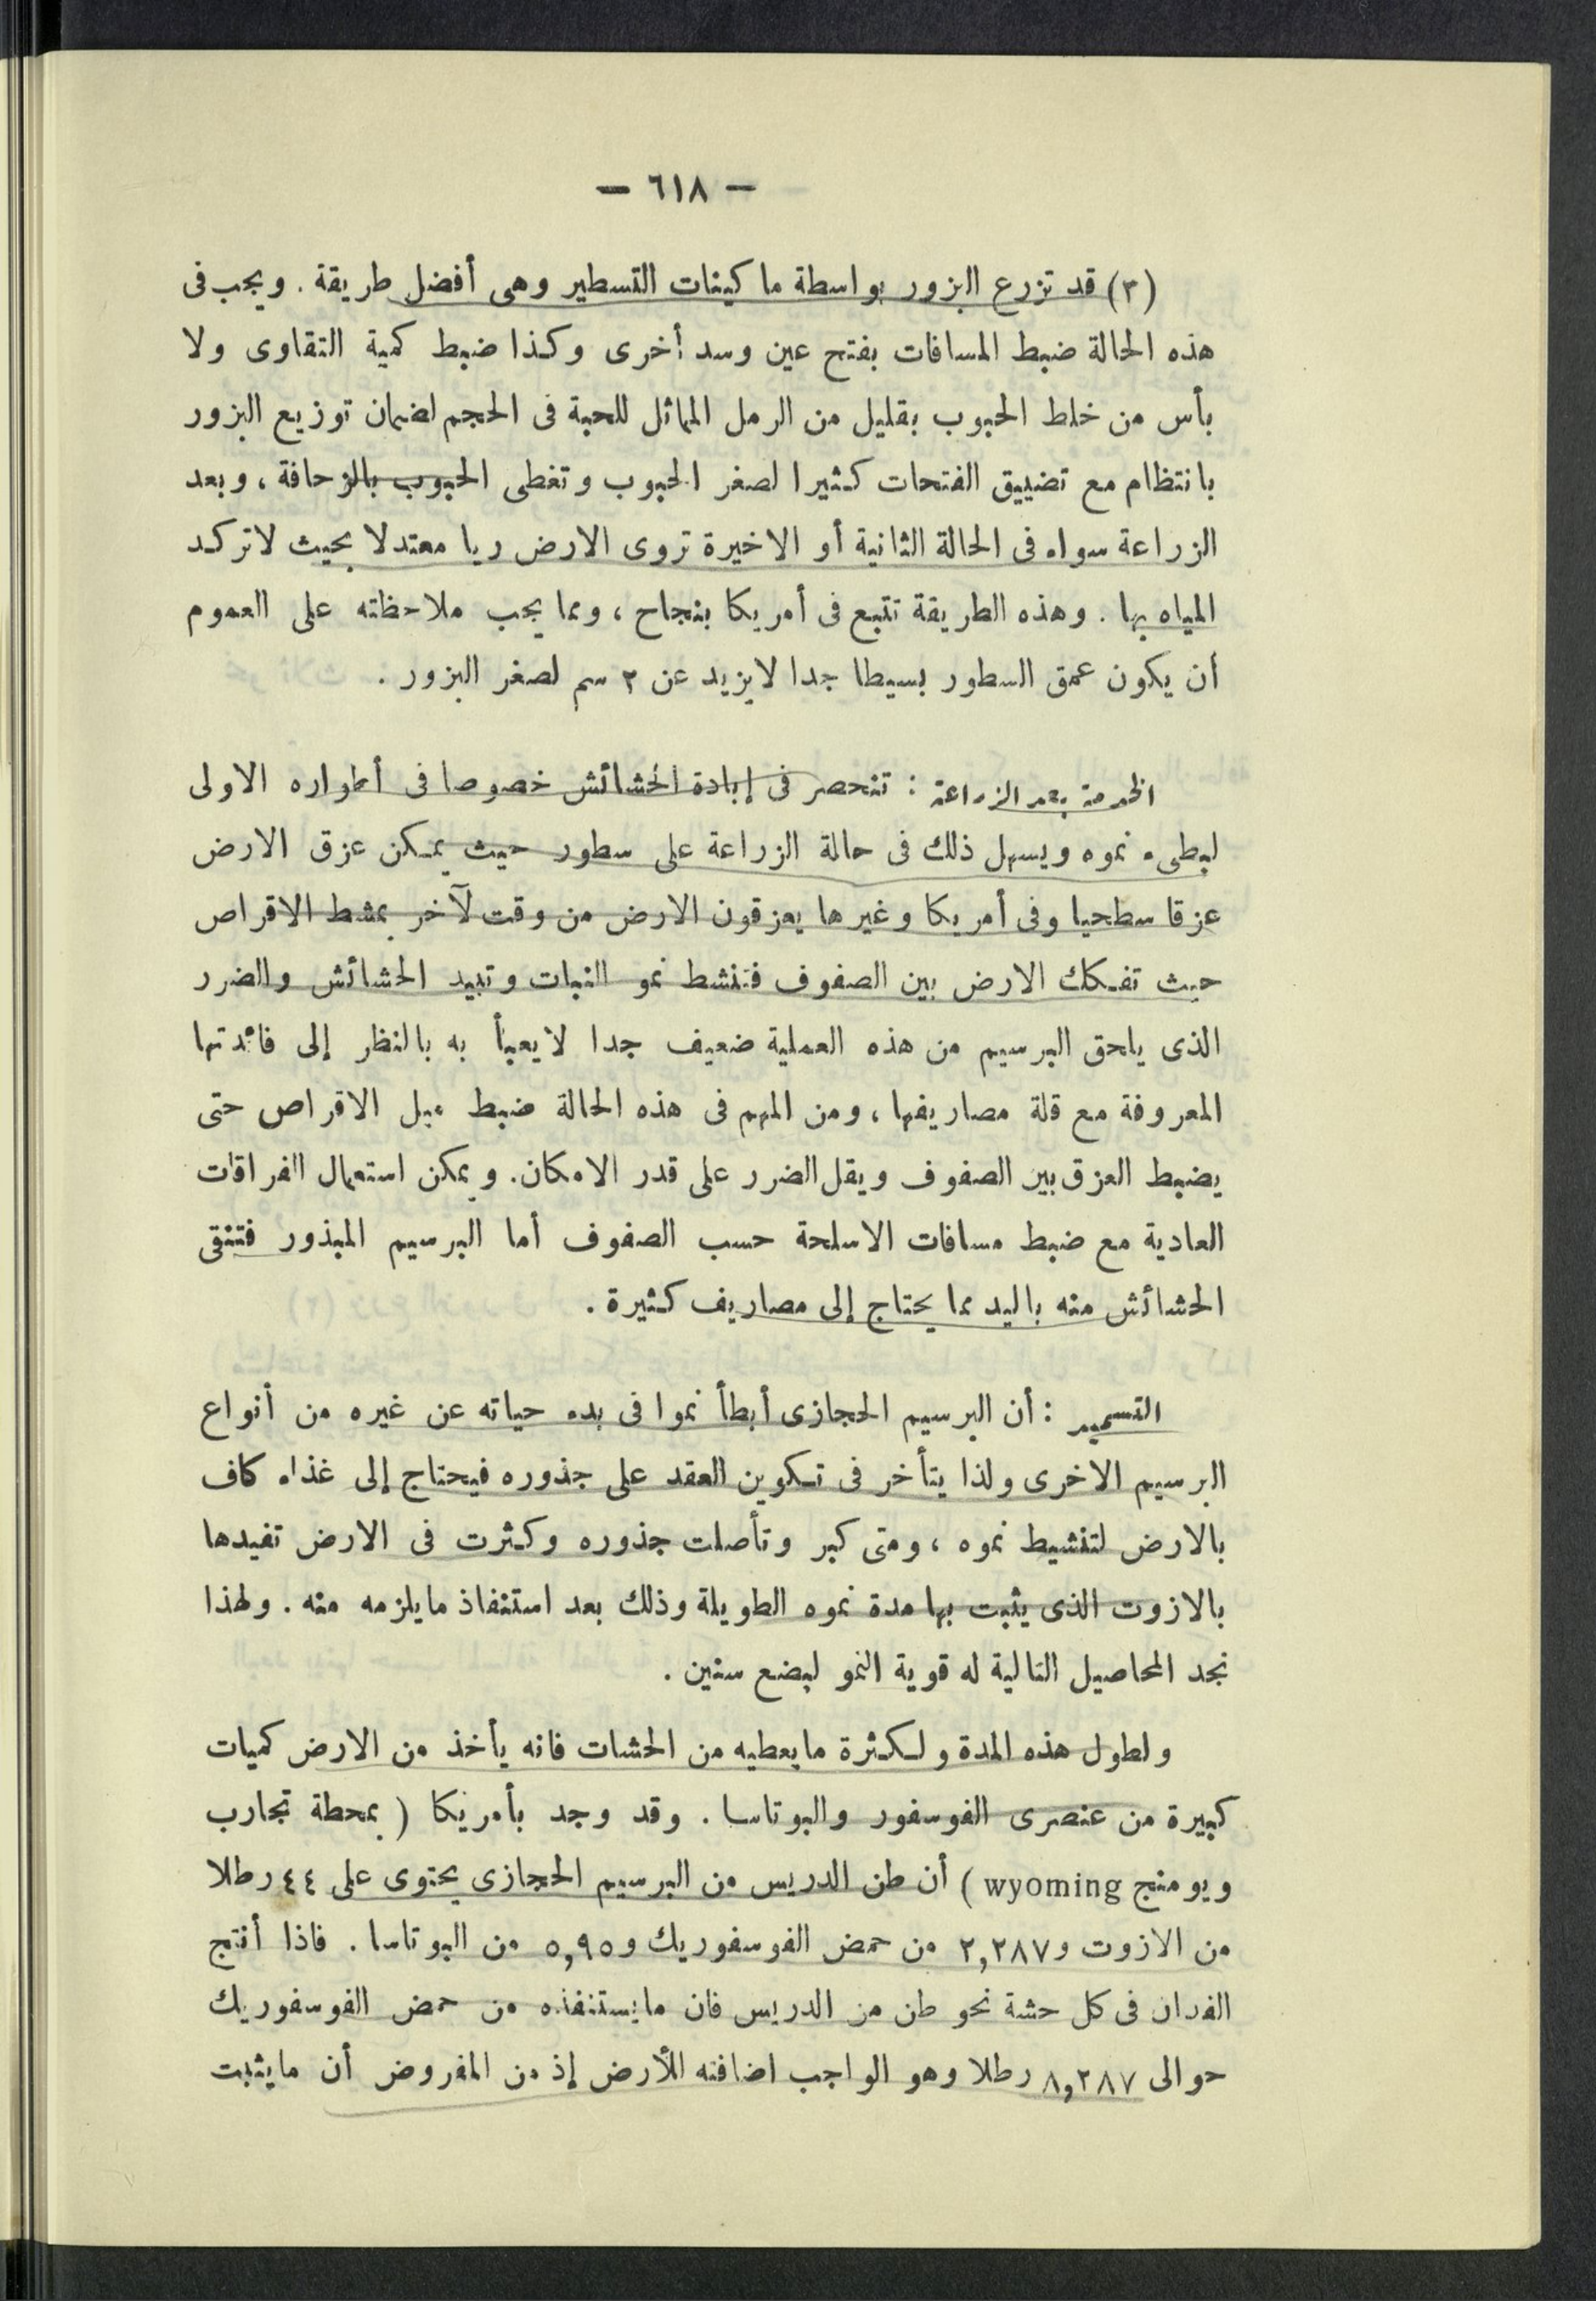 — ٦١٨ —
(٣) قد تزرع البزور بواسطة ماكينات التسطير وهى أفضل طريقة . ويجب فى
هذه الحالة ضبط المسافات بفتح عين وسد أخرى وكذا ضبط كمية التقاوى ولا
بأس من خلط الحبوب بقليل من الرمل المماثل للحبة فى الحجم لضمان توزيع البزور
بانتظام مع تضييق الفتحات كثيرا لصغر الحبوب وتغطى الحبوب بالزحافة ، وبعد
الزراعة سواء فى الحالة الثانية أو الاخيرة تروى الارض ريا معتدلا بحيث لاتركد
المياه بها . وهذه الطريقة تتبع فى أمريكا بنجاح ، ومما يجب ملاحظته على العموم
أن يكون عمق السطور بسيطا جدا لايزيد عن ٢ سم لصغر البزور .
الخدمة بعد الزراعة : تنحصر فى إبادة الحشائش خصوصا فى أطواره الاولى
لبطىء نموه ويسهل ذلك فى حالة الزراعة على سطور حيث يمكن عزق الارض
عزقا سطحيا وفى أمريكا وغيرها يعزقون الارض من وقت لآخر بمشط الاقراص
حيث تفكك الارض بين الصفوف فتنشط نمو النبات وتبيد الحشائش والضرر
الذى يلحق البرسيم من هذه العملية ضعيف جدا لايعبأ به بالنظر إلى فائدتها
المعروفة مع قلة مصاريفها ، ومن المهم فى هذه الحالة ضبط ميل الاقراص حتى
يضبط العزق بين الصفوف ويقل الضرر على قدر الامكان. ويمكن استعمال الفراقات
العادية مع ضبط مسافات الاسلحة حسب الصفوف أما البرسيم المبذور فتنقى
الحشائش منه باليد مما يحتاج إلى مصاريف كثيرة .
التسميد : أن البرسيم الحجازى أبطأ نموا فى بدء حياته عن غيره من أنواع
البرسيم الاخرى ولذا يتأخر فى تكوين العقد على جذوره فيحتاج إلى غذاء كاف
بالارض لتنشيط نموه ، ومتى كبر وتأصلت جذوره وكثرت فى الارض تفيدها
بالازوت الذى يثبت بها مدة نموه الطويلة وذلك بعد استنفاذ مايلزمه منه . ولهذا
نجد المحاصيل التالية له قوية النمو لبضع سنين .
ولطول هذه المدة ولكثرة مايعطيه من الحشات فانه يأخذ من الارض كميات
كبيرة من عنصرى الفوسفور والبوتاسا . وقد وجد بأمريكا ( بمحطة تجارب
ويومنج wyoming ) أن طن الدريس من البرسيم الحجازى يحتوى على ٤٤ رطلا
من الازوت و٢,٢٨٧ من حمض الفوسفوريك و٥,٩٥ من البوتاسا . فاذا أنتج
الفدان فى كل حشة نحو طن من الدريس فان مايستنفذه من حمض الفوسفوريك
حوالى ٨,٢٨٧ رطلا وهو الواجب اضافته للأرض إذ من المفروض أن مايثبت